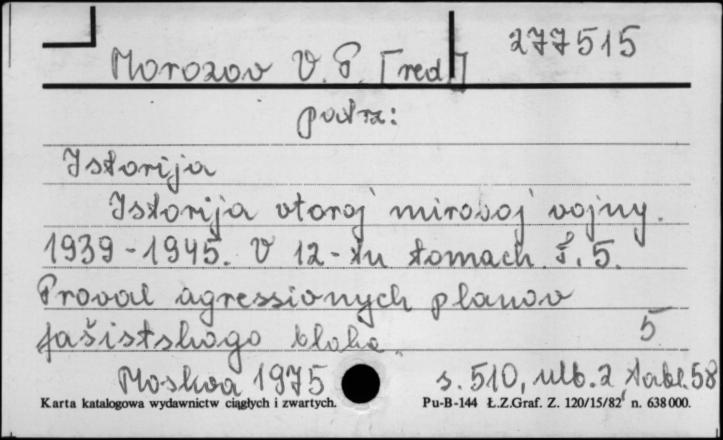 277515
Morozov V. P. [red.]
patrz:
Istorija
Istorija vtoroj mirovoj vojny.
1939-1945. V 12-tu tomach. T. 5.
Proval agressionych planov
fašistskogo bloka.
5
Moskva 1975 s. 510, ulb. 2 tabl. 58
Karta katalogowa wydawnictw ciągłych i zwartych. Pu-B-144 Ł.Z.Graf. Z. 120/15/82 n. 638000.